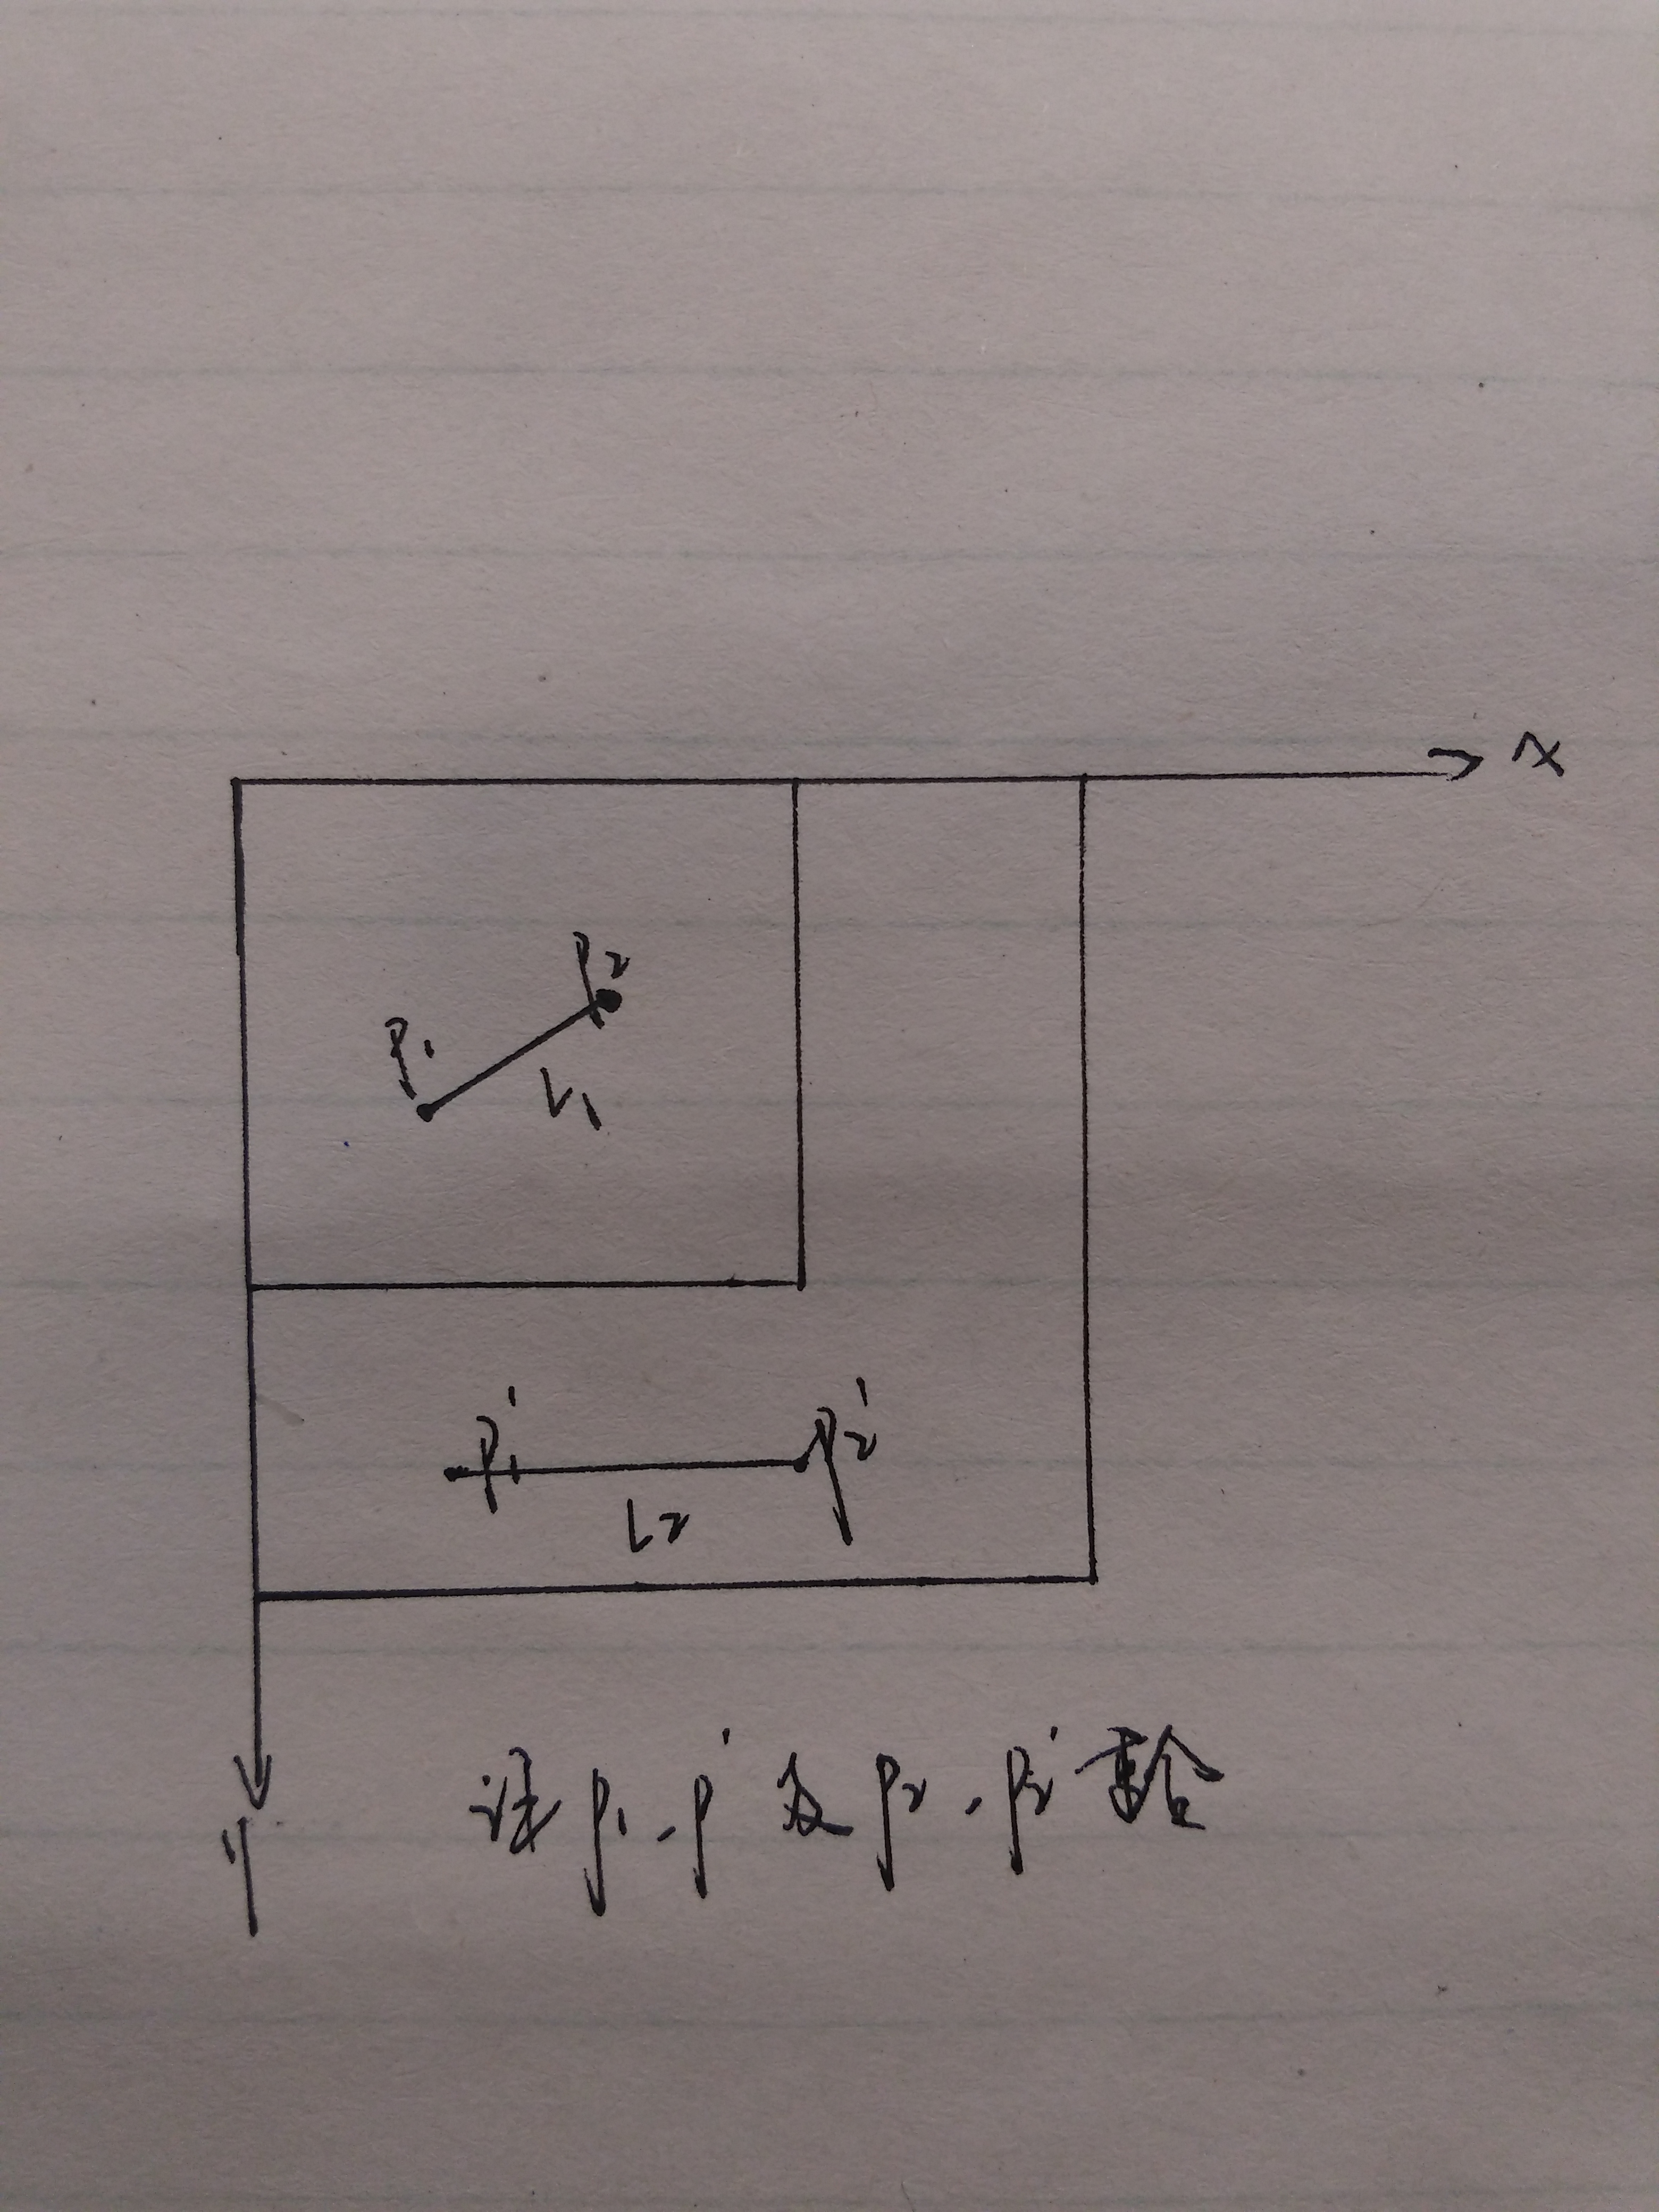 x
P2
P1
L1
P1'
P2'
L2
y
让 P1、P' 及 P2、P2' 重合